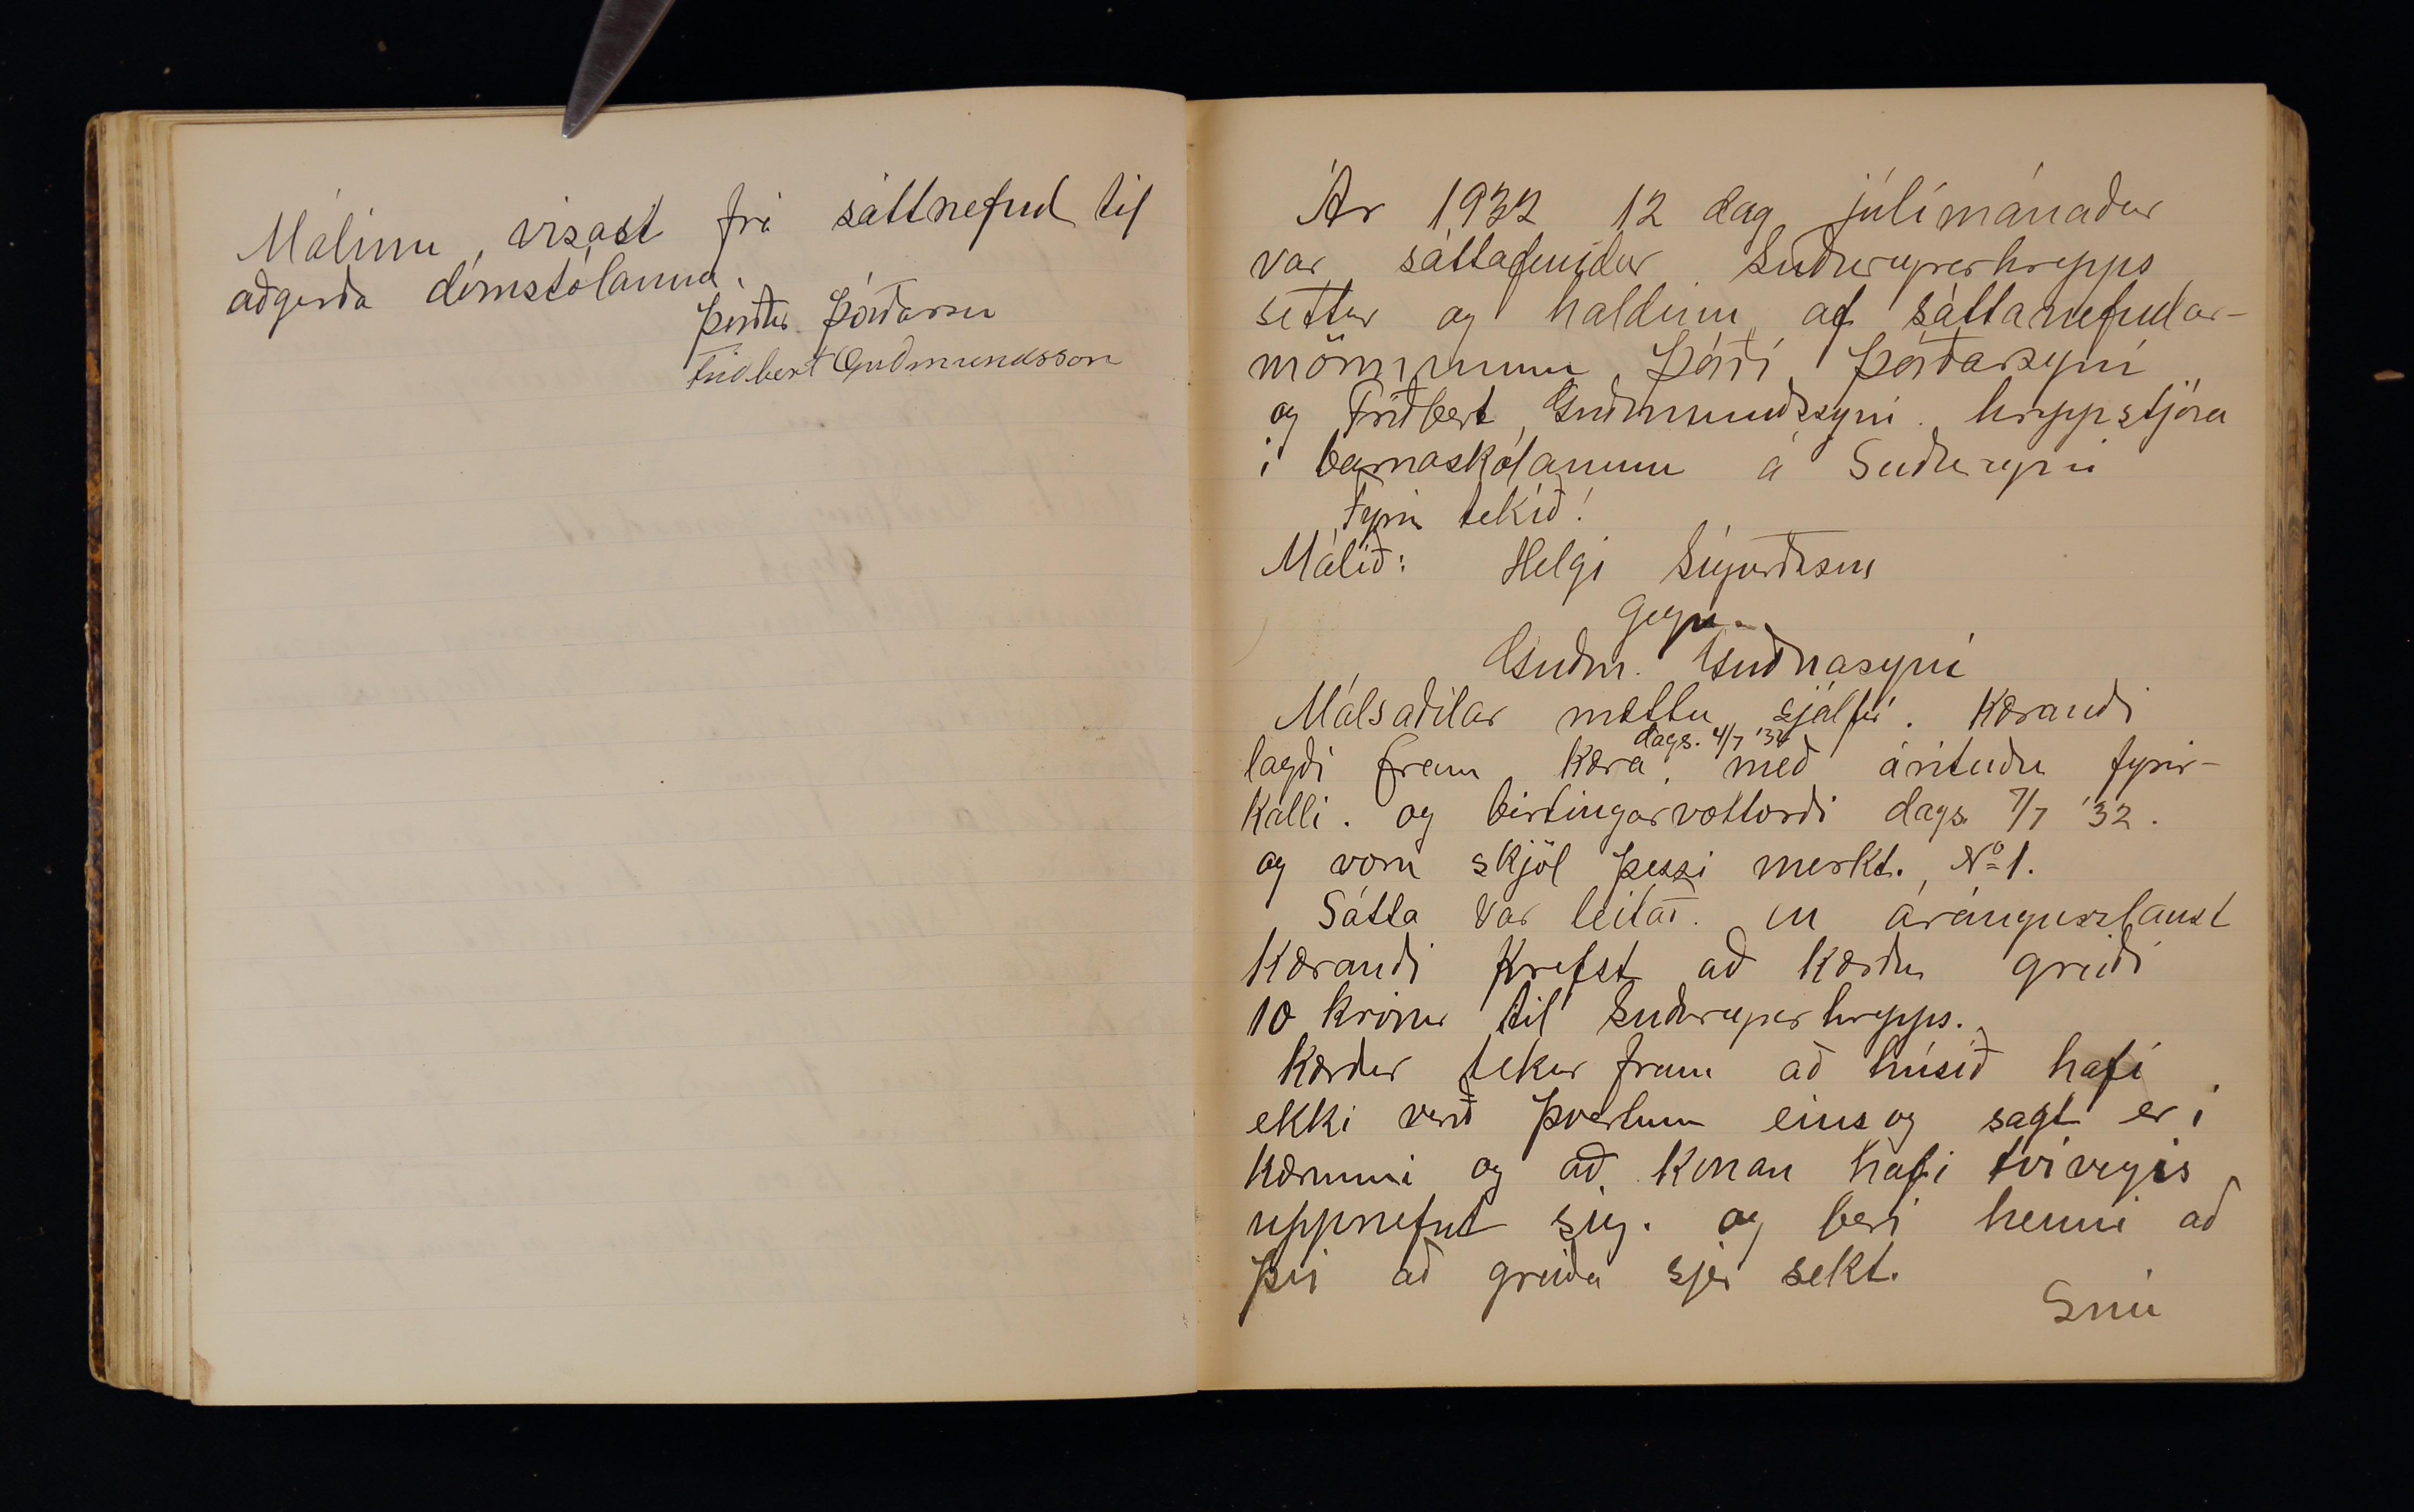 Málinu vísast frá sáttnefnd til
aðgerða dómstólanna.
Þórður Þórðarson
Friðbert Guðmundsson
Ár 1932 12 dag júlímánaðar
var sáttafundur Suðureyrarhrepps
settur og haldinn af sáttanefndar-
mönnunum Þórði Þórðarsyni
og Friðbert Guðmundssyni hreppstjóra
í barnaskólanum á Suðureyri
Fyrir tekið!
Málið: Helgi Sigurðsson
gegn
Guðm. Guðnasyni
Málsaðilar mættu sjálfir. Kærandi
dags. 4/7 '32
lagði fram kæru, með árituðu fyrir-
kalli. og birtingarvottorði dags. 7/7 '32.
og voru skjöl þessi merkt. № 1.
Sátta var leitað. en árángurslaust
Kærandi krefst að kærður greiði
10 krónur til Suðureyrarhrepps.
Kærður tekur fram að húsið hafi
ekki verið þvertum eins og sagt er í
kærunni og að konan hafi tvívegis
uppnefnt sig. og beri henni að
því að greiða sjer sekt.
Snú